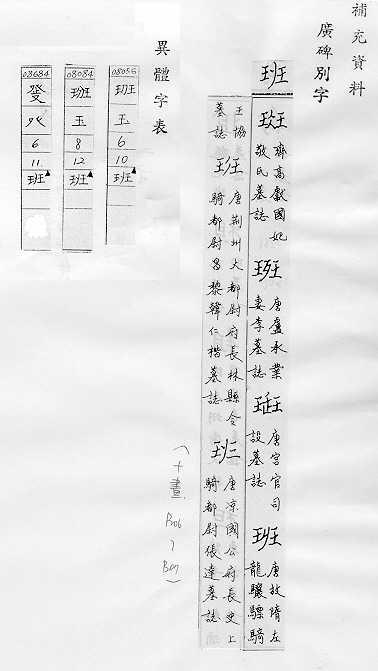 補充資料
廣碑別字
班
齊高獻國妃敬氏墓誌
唐盧承業妻李墓誌
唐宮官司設墓誌
唐故隋左龍驤驃騎
王協墓誌
唐荊州大都尉府長林縣令騎都尉昌黎韓仁楷墓誌
唐涼國公府長史上騎都尉張達墓誌
(十畫, P206, P207)
異體字表
08056
玉
6
10
班
08084
玉
8
12
班
08684
癶
6
11
班